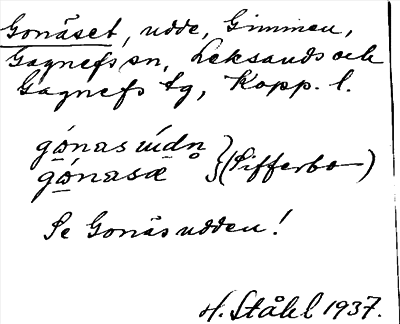 Gonäset, udde, Gimmen,
Gagnefs sn, Leksands och
Gagnefs tg, Kopp. l.
gǫ́nasųídn̥ } (Sifferbo)
gǫ́nasæ
Se Gonäsudden!
H. Ståhl 1937.